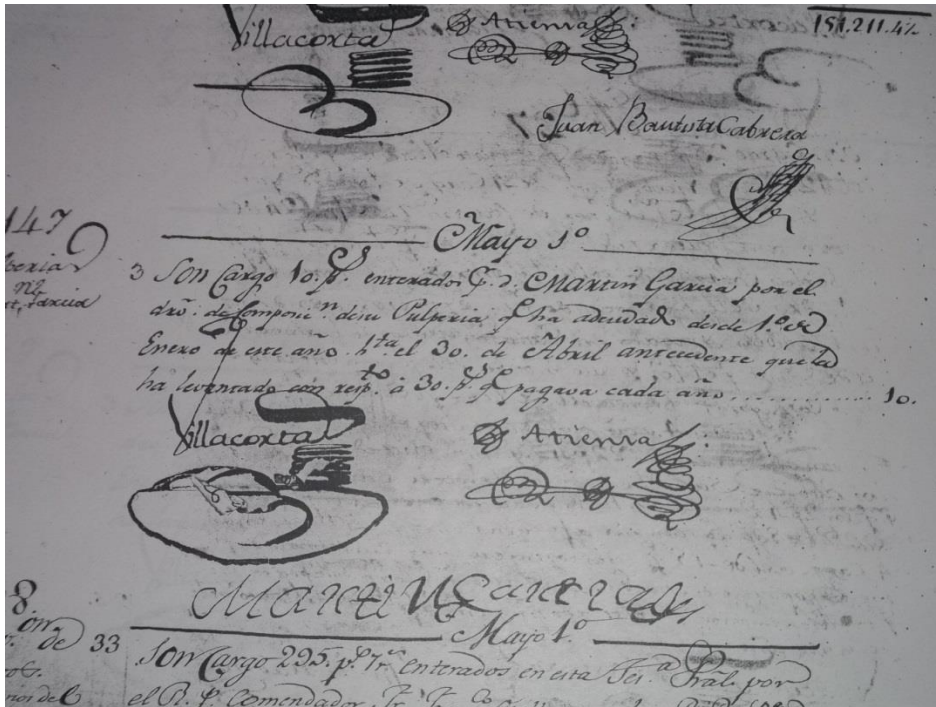 Villacorta
Atienza
151.211.4½
Juan Bautista Cabrera
147
Mayo 1º
Pulperia
3 Son Cargo 10. ps. enterados pr. d. Martin Garcia por el
dro. de Composicn. de su Pulperia, q. ha adeudado desde 1.º de
Enero de este año hta. el 30. de Abril antecedente que la
ha levantado con respto. à 30. ps. q. pagava cada año ............ 10.
Villacorta
Atienza
Martin Garcia
8
Mayo 1º
de 33 Son Cargo 295. ps. 7rs. enterados en esta Tes.a Gral. por
el R. P. Comendador Fr.